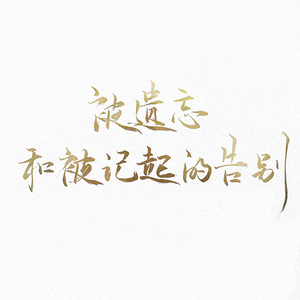 被遗忘
和被记起的告别